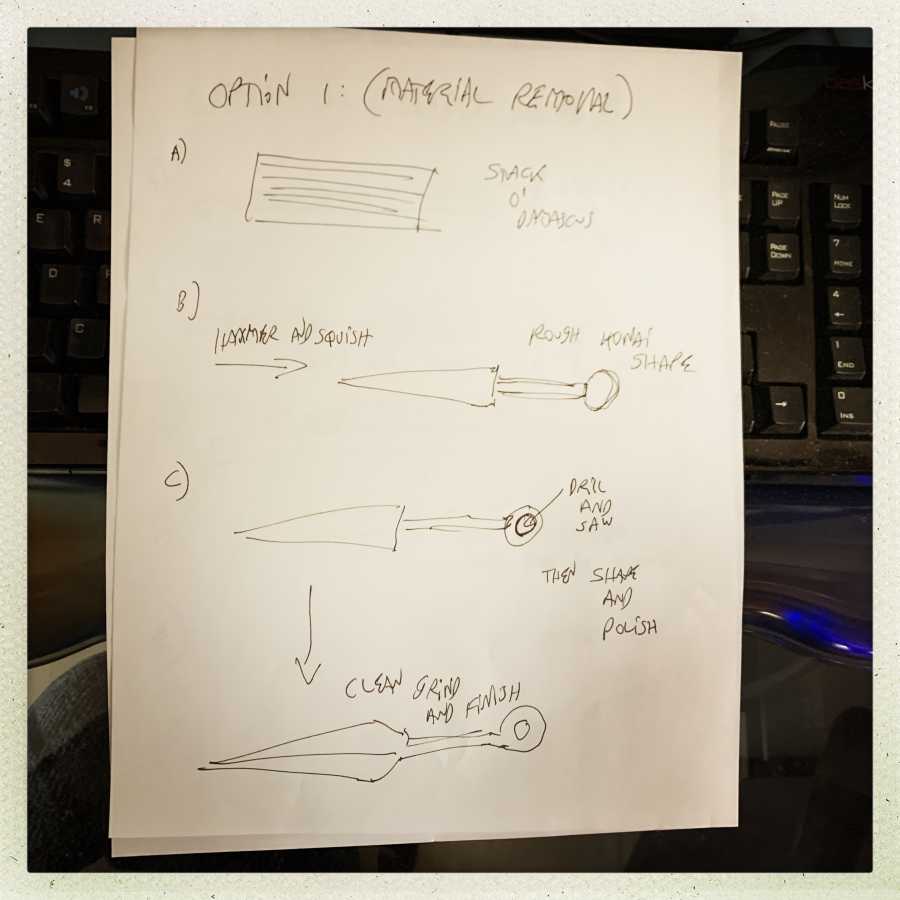 OPTION 1: (MATERIAL REMOVAL)
A)
STACK
O'
DAMASCUS
B)
HAMMER AND SQUISH
ROUGH KUNAI
SHAPE
C)
DRILL
AND
SAW
THEN SHAPE
AND
POLISH
CLEAN GRIND
AND FINISH
$
4
E R
D
C
PAUSE
PAGE
UP
PAGE
DOWN
NUM
LOCK
7
HOME
4
←
1
END
0
INS
→